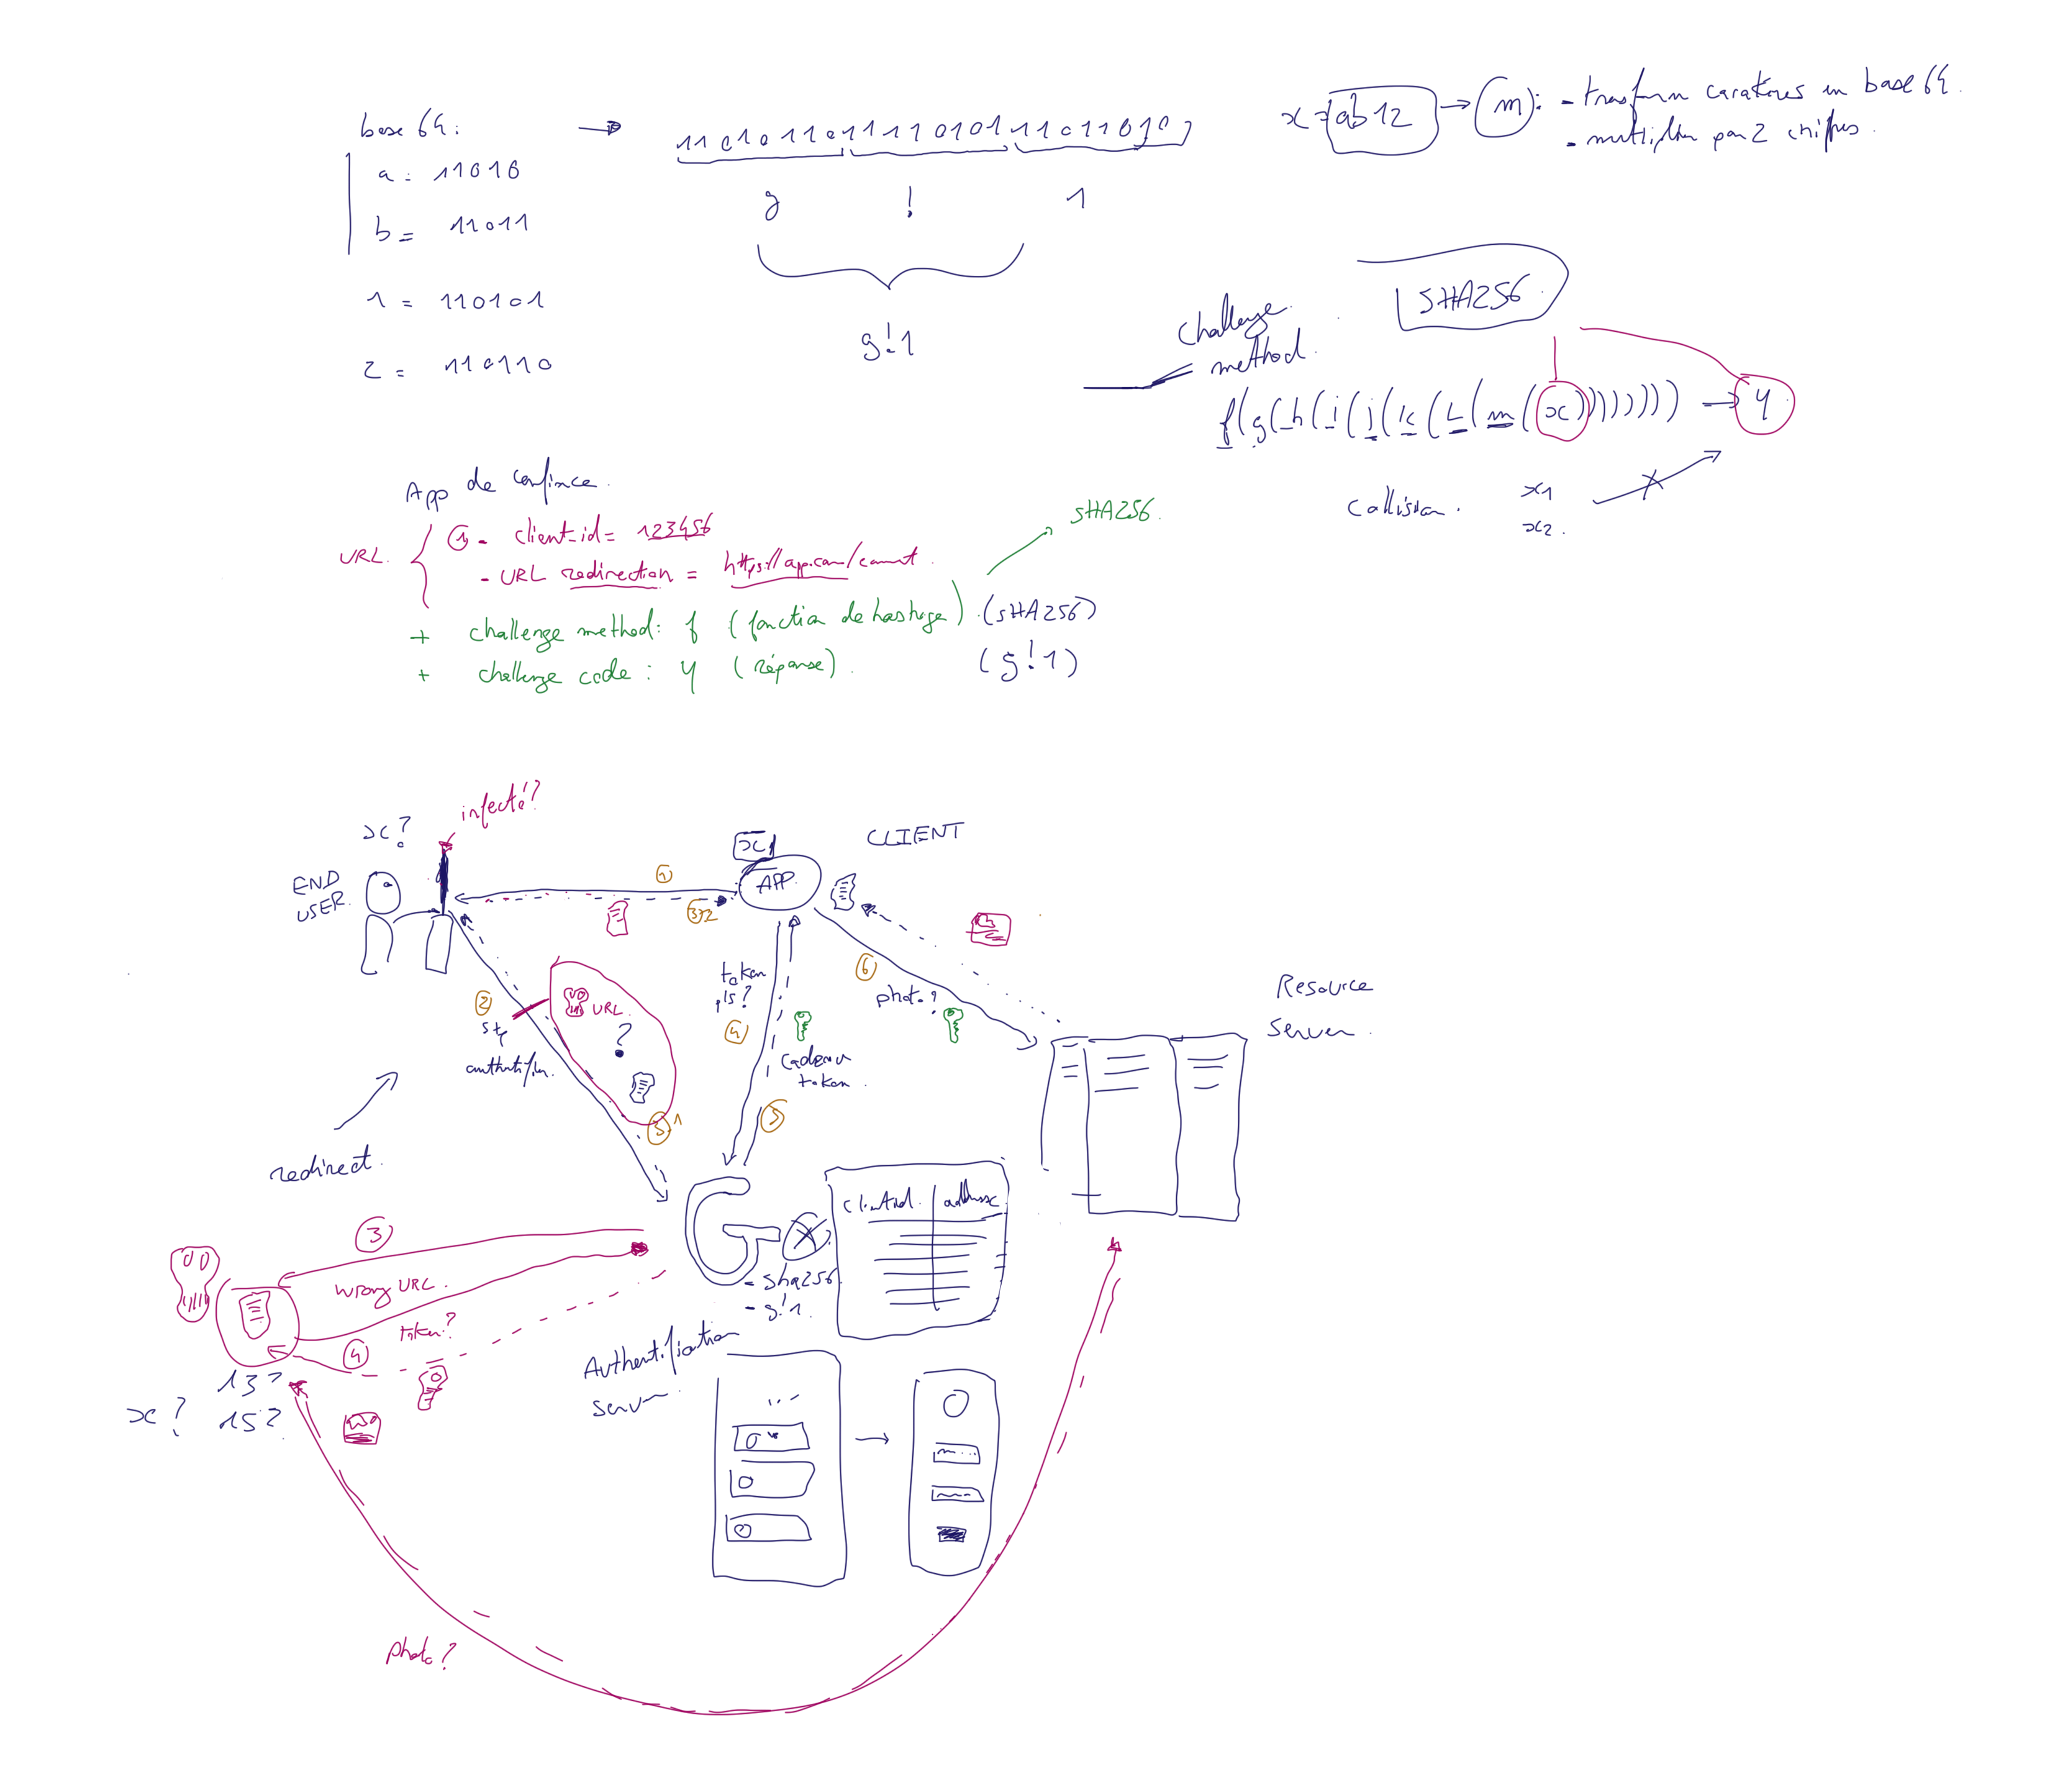 base 64:
a = 11010
b = 11011
1 = 110101
2 = 110110
11010110111101011101101 0
g ! 1
g!1
x = ab12 → m : - transform caratères in base 64.
- multiplier par 2 chiffres.
SHA256
challenge
method.
f(g(h(i(j(k(L(m(x)))))))) → y
collision. x1
x2.
App de confiance.
URL. ① - client_id = 123456
- URL redirection = https://app.com/connect.
+ challenge method: f (fonction de hashage). (SHA256)
SHA256.
+ challenge code : y (réponse). (g!1)
infecté?
x?
END
USER.
1
3.2
x1
APP.
CLIENT
2
stp
authentifier.
URL
?
3.1
token
pls?
4
cadeau
token.
5
6
photo?
Resource
Server.
redirect.
G
- sha256
- g!1.
client_id. adresse
Authentification
server.
3
wrong URL.
token?
4
x? 13?
15?
photo?